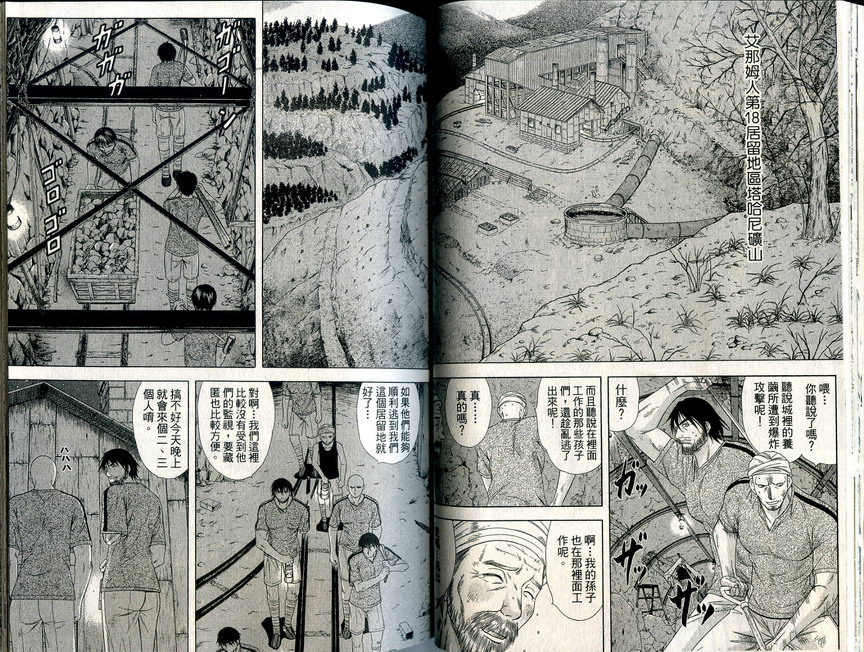 艾那姆人第18居留地區塔哈尼礦山
喂…
你聽說了嗎?
聽說城裡的養
繭所遭到爆炸
攻擊呢!
什麼?
ガッ
ザッ
ザッ
而且聽說在裡面
工作的那些孩子
們,還趁亂逃了
出來呢!
真……
真的嗎?
啊…我的孫子
也在那裡面工
作呢。
ガゴーン
ガガガ
ゴロゴロ
如果他們能夠
順利逃到我們
這個居留地就
好了…
對啊…我們這裡
比較沒有受到他
們的監視,要藏
匿也比較方便。
搞不好今天晚上
就會來個二、三
個人唷。
ハハハ